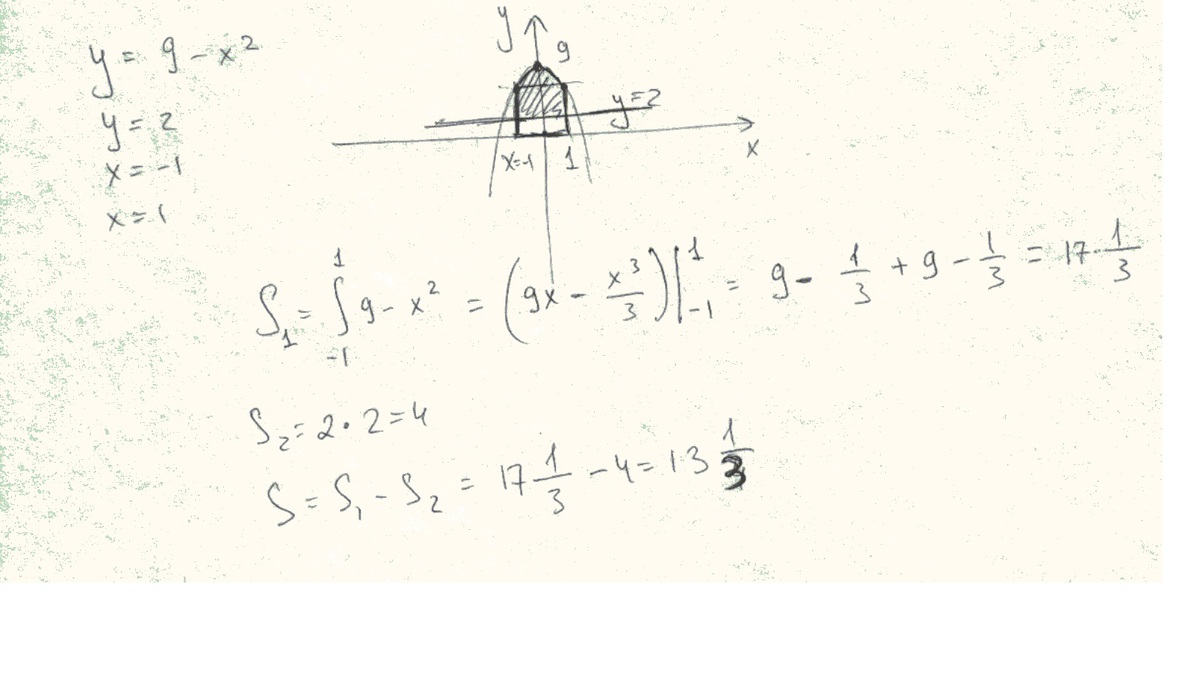 y = 9 - x²
y = 2
x = -1
x = 1
y
9
y=2
x
x=-1
1
S₁ = ∫₋₁¹ 9 - x² = (9x - x³/3)|₋₁¹ = 9 - 1/3 + 9 - 1/3 = 17 1/3
S₂ = 2 · 2 = 4
S = S₁ - S₂ = 17 1/3 - 4 = 13 1/3